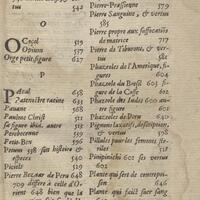 tus 542
O
OCçol 519
Opium 517
Orge petit, figure 627
P
PAcal 658
Patenostre racine 633
Pauame 568
Pauline Christ 521
se figure ibid. autre
Perebecenuc 529
Petit-Ben 596
Petum 538 son histoire &
especes 540
Picielt 529
Pierre BEZAAR de Peru 648
709 differe à celle d'O-
rient 648 bis 649
Pierre-Prassonne 579
Pierre Sanguine, & vertus
585
Pierre propre aux suffocatiõs
de matrice 717
Pierre de Tiburons, & ver-
tus 588
Phazeoles de l'Amerique, fi-
gures 604
Phazeole du Bresil 603 fi-
gure 602
Phazeole des Indes 600 au-
tre figure 601
Phazeoles de Perou 640
Pignons laxatifs, description,
& vertus 598
Pillules pour les femmes ste-
riles 568
Pinipinichi 602 ses vertus
602
Plante qui sent de contrepoi-
son 646
Plante qui faict sang